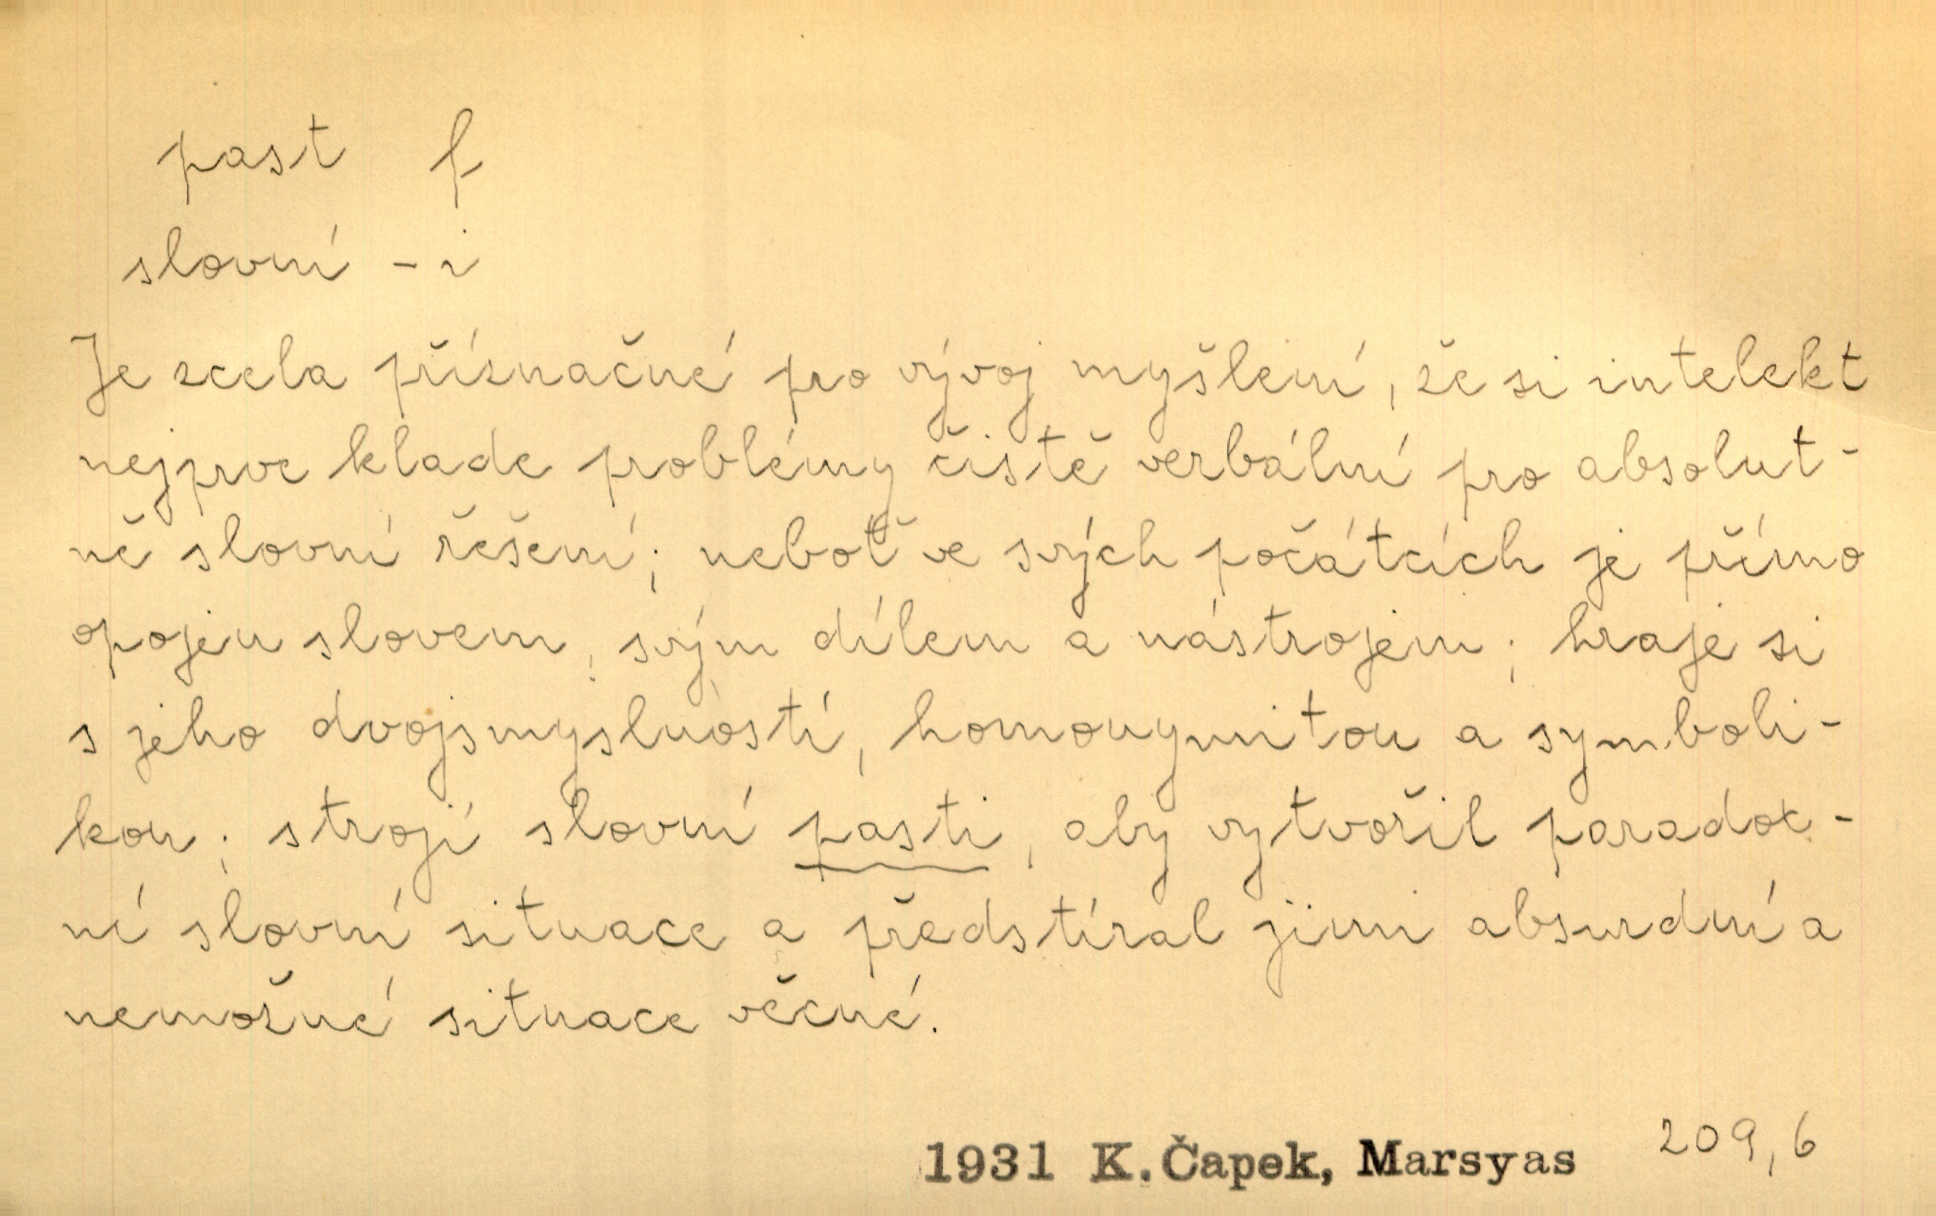 past f
slovní - i
Je zcela příznačné pro vývoj myšlení, že si intelekt
nejprve klade problémy čistě verbální pro absolut-
ně slovní řešení; neboť ve svých počátcích je přímo
opojen slovem, svým dílem a nástrojem; hraje si
s jeho dvojsmyslností, homonymitou a symboli-
kou; strojí slovní pasti, aby vytvořil paradox-
ní slovní situace a předstíral jimi absurdní a
nemožné situace věcné.
1931 K. Čapek, Marsyas 209,6